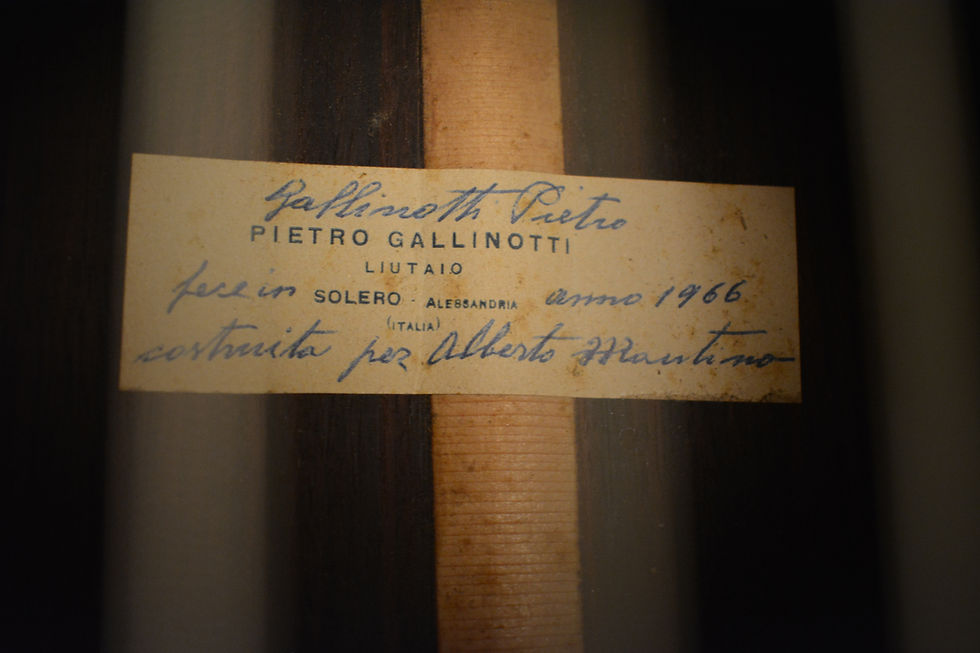 Gallinotti Pietro
PIETRO GALLINOTTI
LIUTAIO
fece in SOLERO - ALESSANDRIA anno 1966
(ITALIA)
costruita per Alberto Mantino